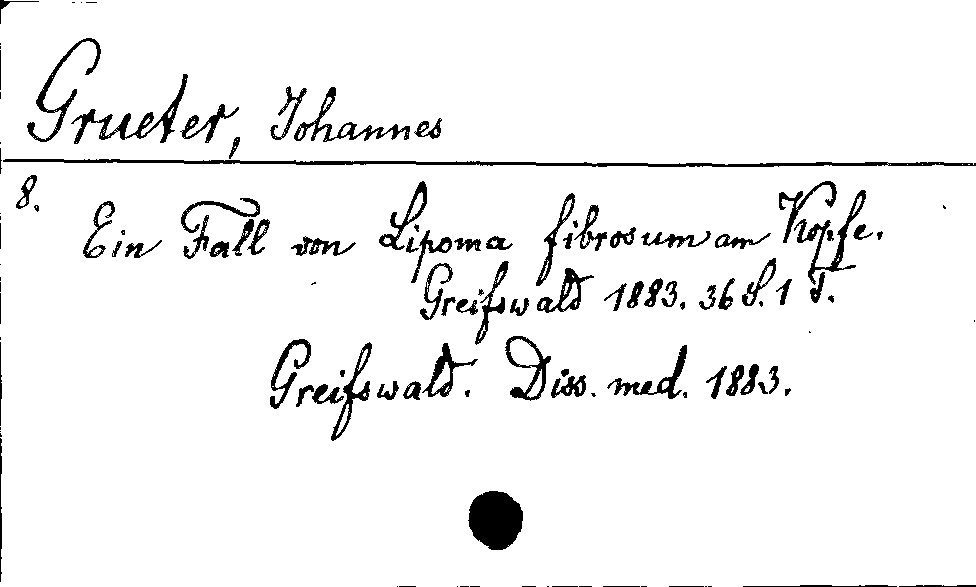 Grueter, Johannes
8.
Ein Fall von Lipoma fibrosum am Kopfe.
Greifswald 1883. 36 S. 1 T.
Greifswald. Diss. med. 1883.